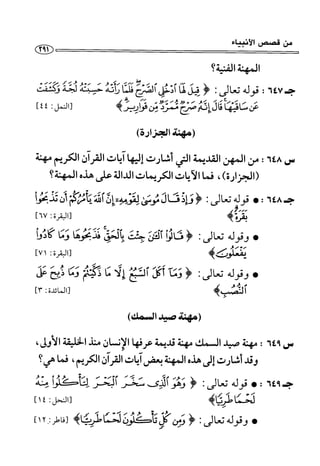 من قصص الأنبياء
٢٩١
المهنة الفنية؟
جـ ٦٤٧ : قوله تعالى: ﴿ قِيلَ لَهَا ٱدْخُلِى ٱلصَّرْحَ فَلَمَّا رَأَتْهُ حَسِبَتْهُ لُجَّةً وَكَشَفَتْ
عَن سَاقَيْهَا قَالَ إِنَّهُ صَرْحٌ مُّمَرَّدٌ مِّن قَوَارِيرَ ﴾ [النمل: ٤٤]
(مهنة الجزارة)
س ٦٤٨ : من المهن القديمة التي أشارت إليها آيات القرآن الكريم مهنة
(الجزارة)، فما الآيات الكريمات الدالة على هذه المهنة؟
جـ ٦٤٨ : • قوله تعالى: ﴿ وَإِذْ قَالَ مُوسَىٰ لِقَوْمِهِ إِنَّ ٱللَّهَ يَأْمُرُكُمْ أَن تَذْبَحُوا
بَقَرَةً ﴾ [البقرة: ٦٧]
• وقوله تعالى: ﴿ قَالُوا ٱلْـَٰٔنَ جِئْتَ بِٱلْحَقِّ فَذَبَحُوهَا وَمَا كَادُوا
يَفْعَلُونَ ﴾ [البقرة: ٧١]
• وقوله تعالى: ﴿ وَمَآ أَكَلَ ٱلسَّبُعُ إِلَّا مَا ذَكَّيْتُمْ وَمَا ذُبِحَ عَلَى
ٱلنُّصُبِ ﴾ [المائدة: ٣]
(مهنة صيد السمك)
س ٦٤٩ : مهنة صيد السمك مهنة قديمة عرفها الإنسان منذ الخليقة الأولى،
وقد أشارت إلى هذه المهنة بعض آيات القرآن الكريم، فما هي؟
جـ ٦٤٩ : • قوله تعالى: ﴿ وَهُوَ ٱلَّذِى سَخَّرَ ٱلْبَحْرَ لِتَأْكُلُوا مِنْهُ
لَحْمًا طَرِيًّا ﴾ [النحل: ١٤]
• وقوله تعالى: ﴿ وَمِن كُلٍّ تَأْكُلُونَ لَحْمًا طَرِيًّا ﴾ [فاطر: ١٢]